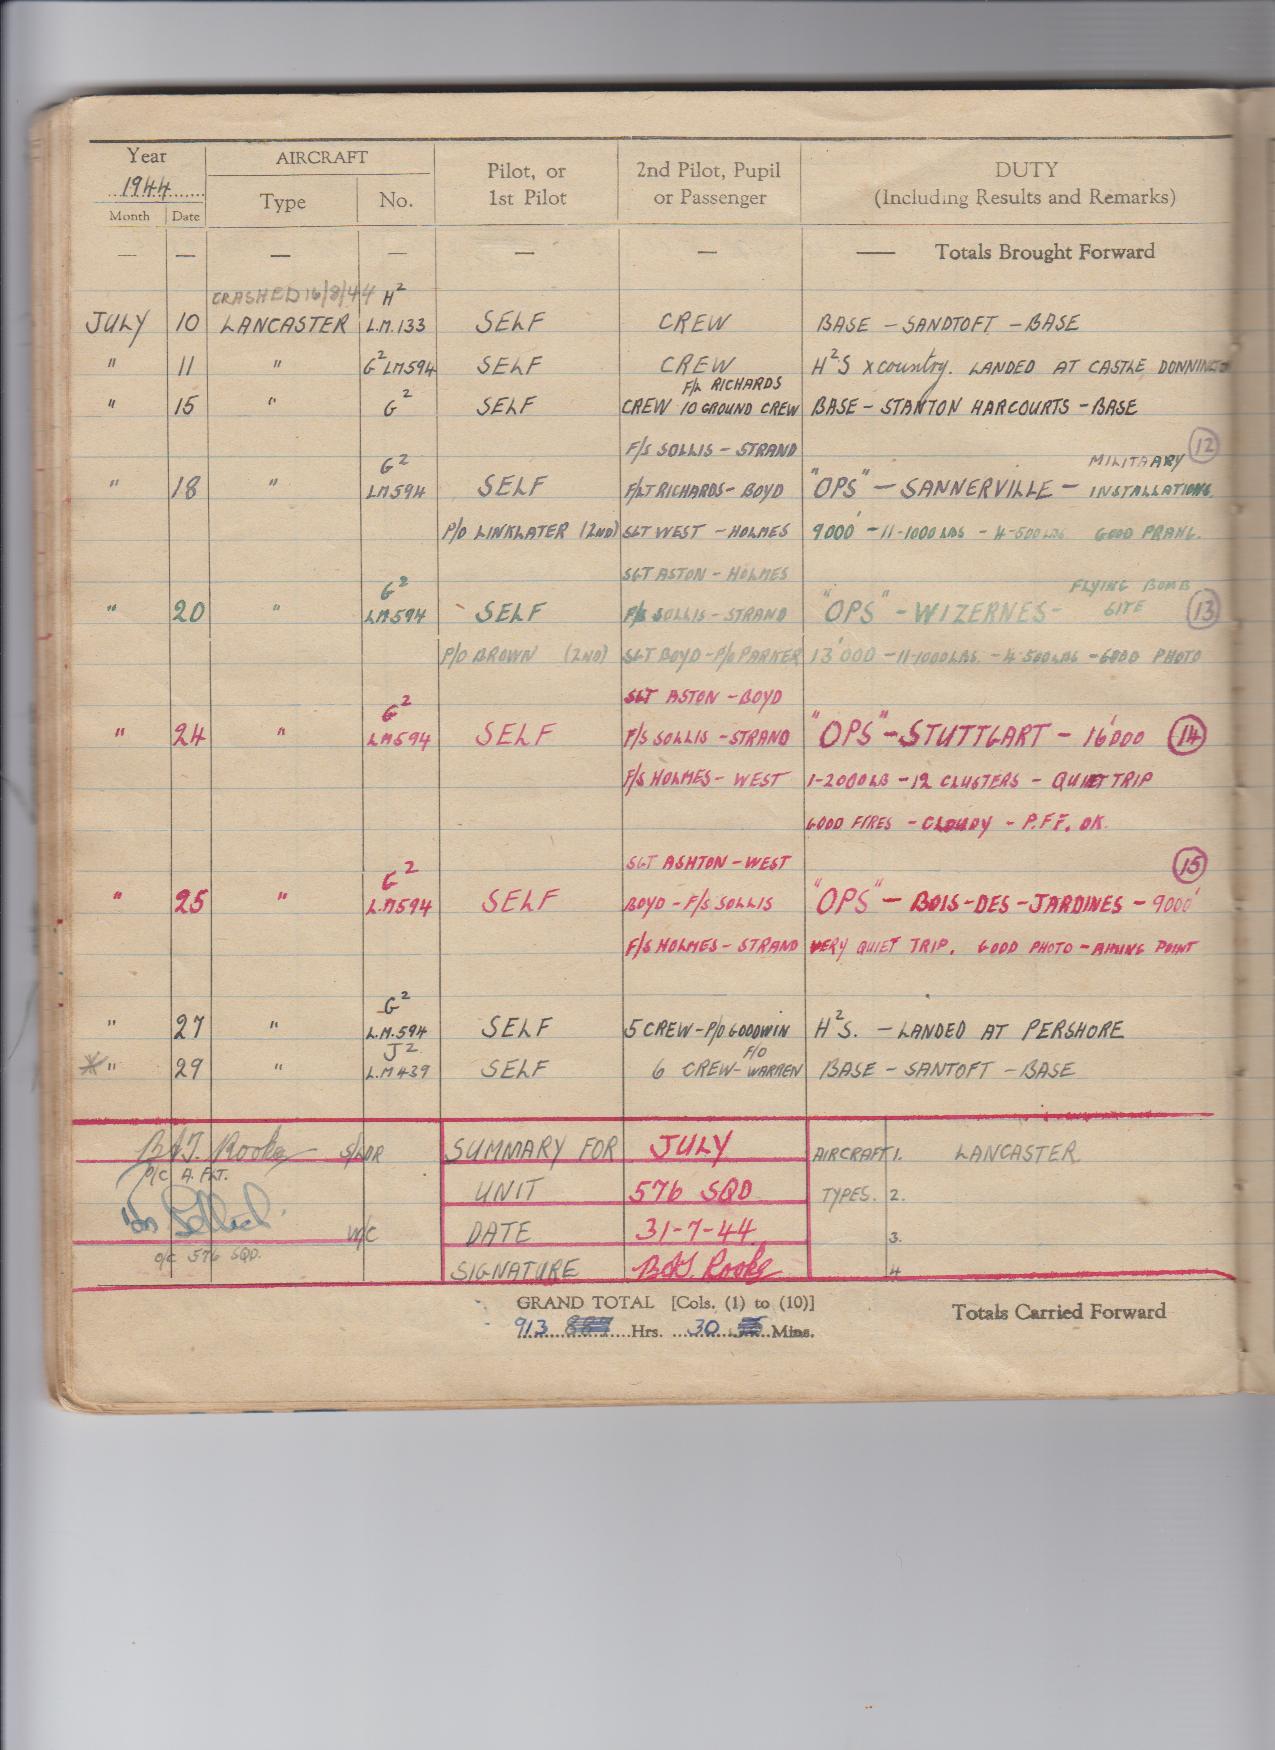 Year AIRCRAFT Pilot, or 2nd Pilot, Pupil DUTY
1944 Type No. 1st Pilot or Passenger (Including Results and Remarks)
Month Date
— — — — — — — Totals Brought Forward
CRASHED 16/8/44 H²
JULY 10 LANCASTER L.M.133 SELF CREW BASE - SANDTOFT - BASE
" 11 " G² LM594 SELF CREW H²S x country. LANDED AT CASTLE DONNINGTON
F/L RICHARDS
" 15 " G² SELF CREW 10 GROUND CREW BASE - STANTON HARCOURTS - BASE
F/S SOLLIS - STRAND 12
G² MILITAARY
" 18 " LM594 SELF F/LT RICHARDS - BOYD "OPS" - SANNERVILLE - INSTALLATIONS
P/O LINKLATER (2ND) SGT WEST - HOLMES 9000' - 11-1000 LBS - 4-500 LBS GOOD PRANG.
SGT ASTON - HOLMES
G² FLYING BOMB
" 20 " LM594 SELF F/S SOLLIS - STRAND "OPS" - WIZERNES - SITE 13
P/O BROWN (2ND) SGT BOYD - P/O PARKER 13'000 - 11-1000 LBS. - 4-500 LBS - GOOD PHOTO
G² SGT ASTON - BOYD
" 24 " LM594 SELF F/S SOLLIS - STRAND "OPS" - STUTTGART - 16'000 14
F/S HOLMES - WEST 1-2000 LB - 12 CLUSTERS - QUIET TRIP
GOOD FIRES - CLOUDY - P.F.F. OK.
G² SGT ASHTON - WEST 15
" 25 " L.M594 SELF BOYD - F/S SOLLIS "OPS" - BOIS-DES-JARDINES - 9000'
F/S HOLMES - STRAND VERY QUIET TRIP. GOOD PHOTO - AIMING POINT
G²
" 27 " L.M.594 SELF 5 CREW - P/O GOODWIN H²S. - LANDED AT PERSHORE
J² F/O
* " 29 " L.M439 SELF 6 CREW - WARREN BASE - SANTOFT - BASE
B.A.J. Rooke S/LDR SUMMARY FOR JULY AIRCRAFT 1. LANCASTER
O/C A. FLT. UNIT 576 SQD TYPES. 2.
W/C DATE 31-7-44 3.
O/C 576 SQD. SIGNATURE B.A.J. Rooke 4
GRAND TOTAL [Cols. (1) to (10)] Totals Carried Forward
913 Hrs. 30 Mins.